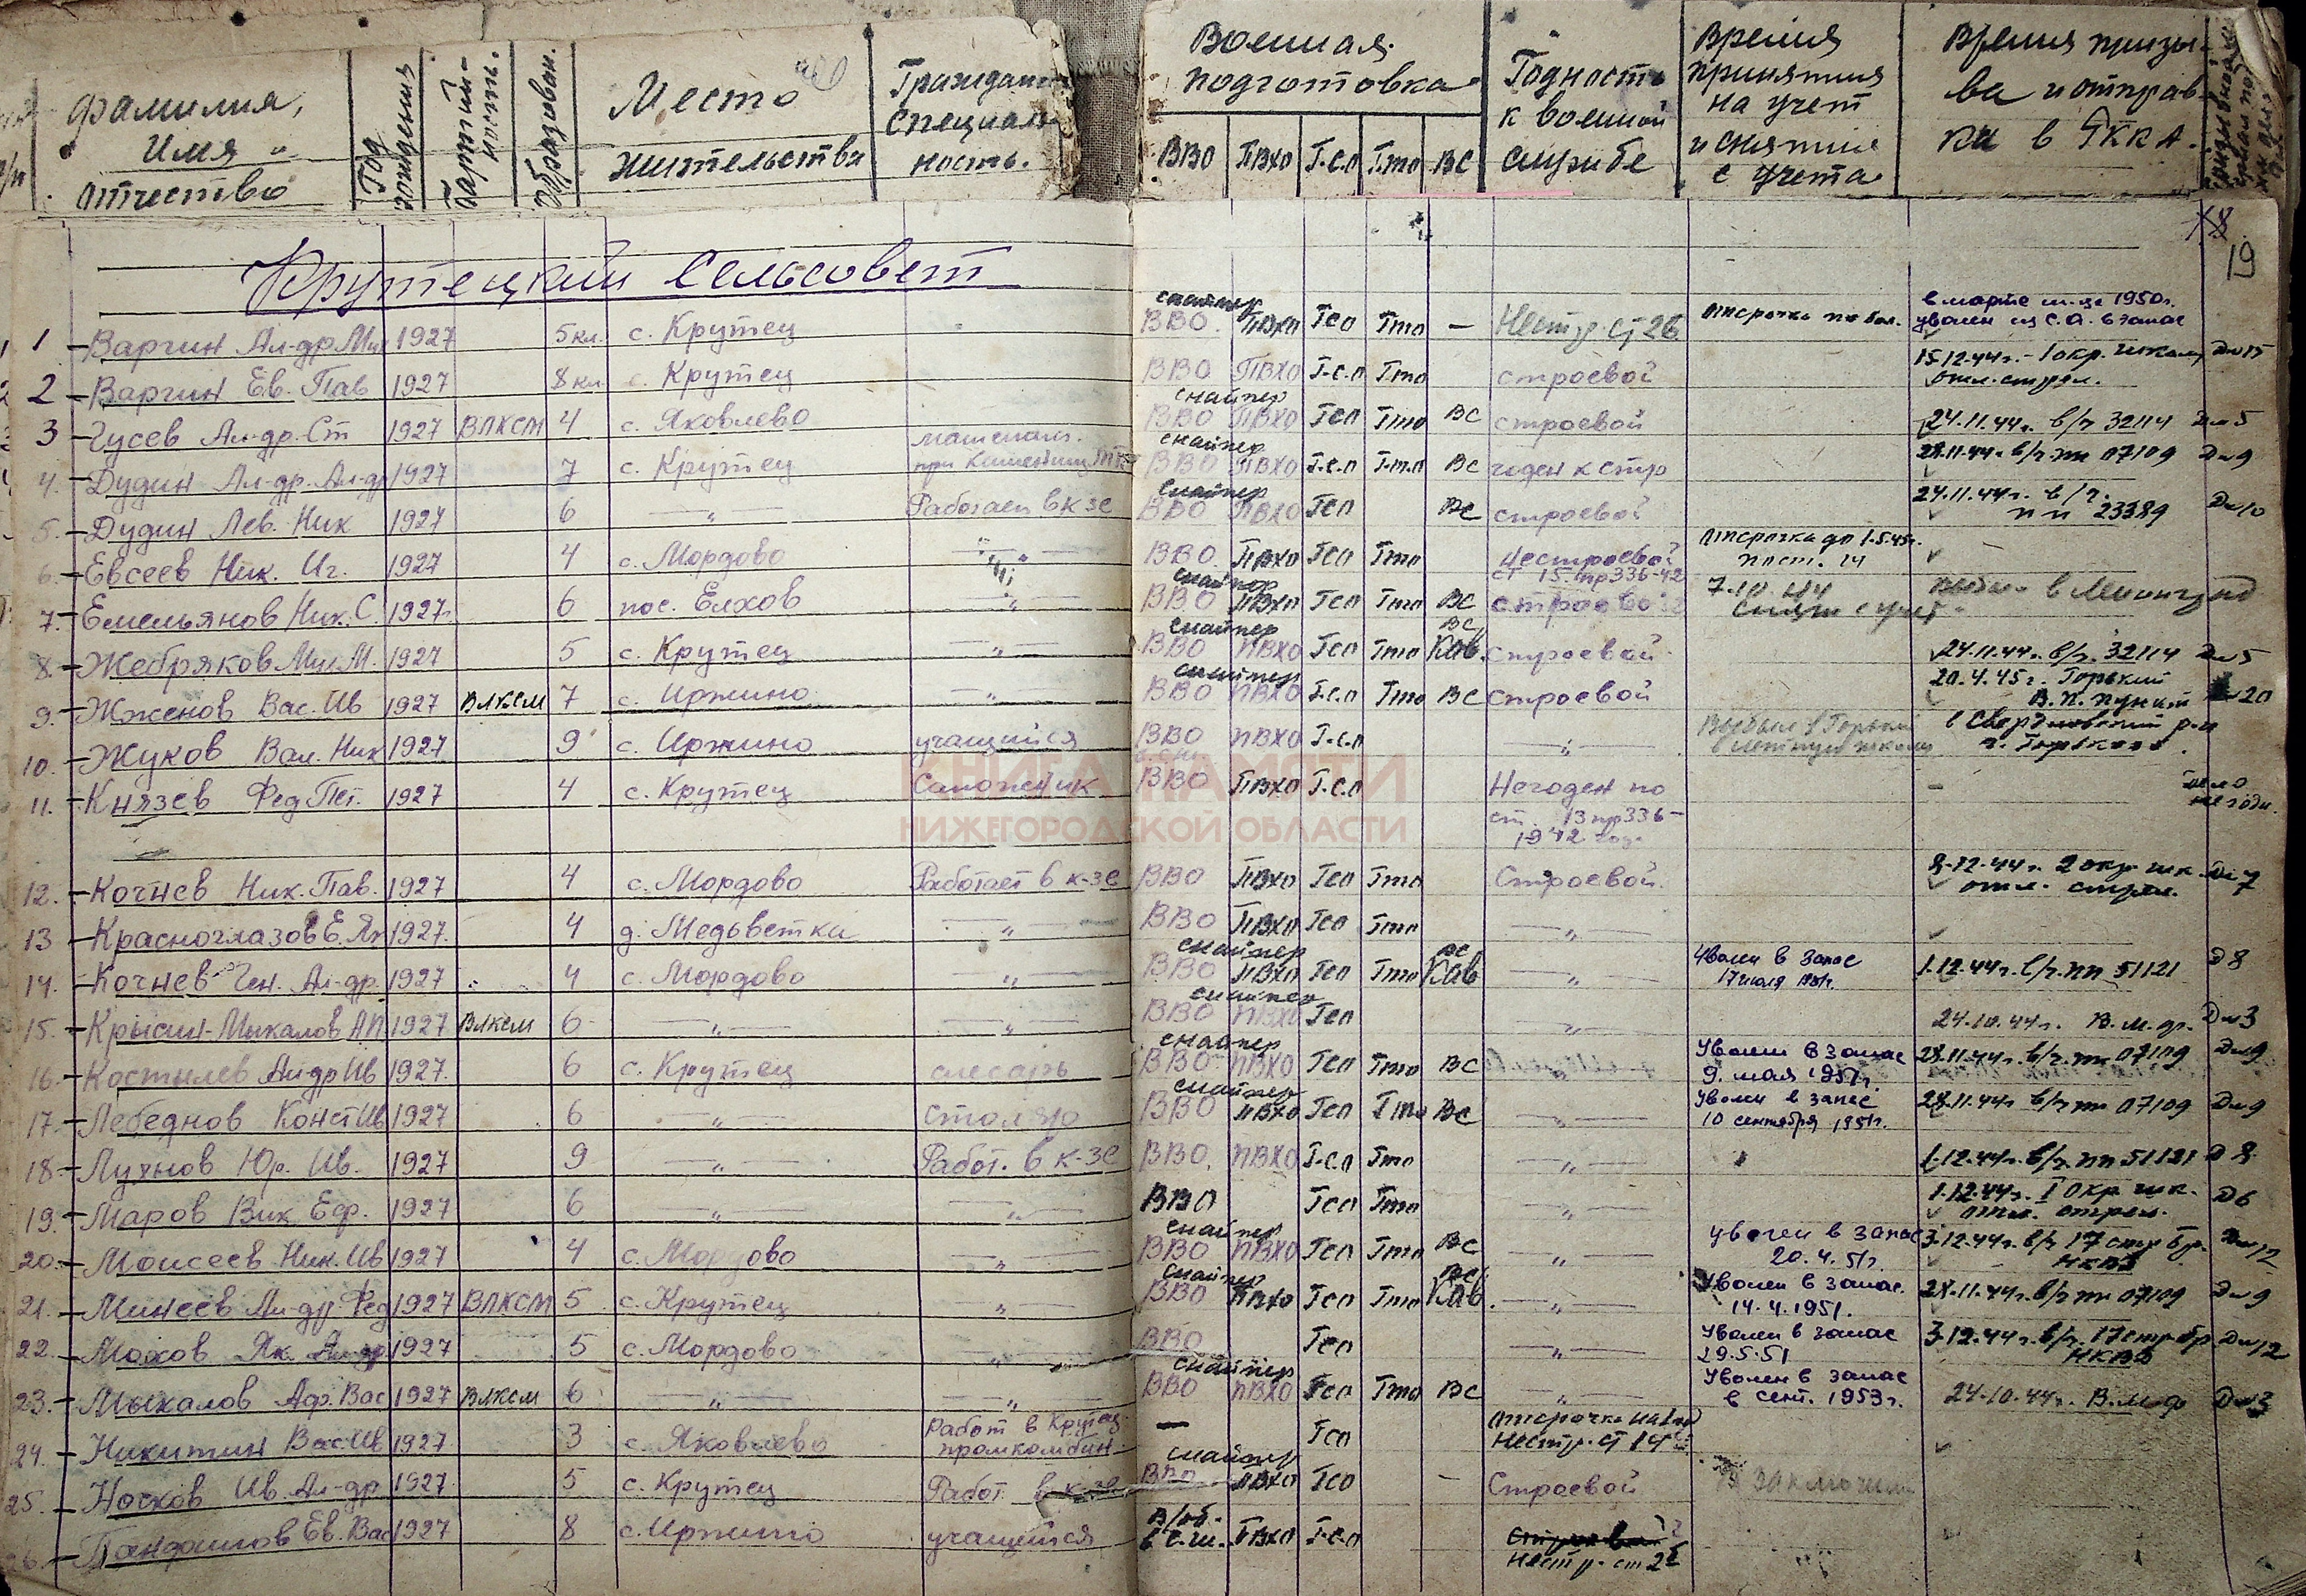 фамилия, имя и отчество
Год рождения
Партийность.
Образован.
Место жительства
Гражданск специальность.
Военная подготовка
ВВО ПВХО Г-с.о Гто ВС
Годность к военной службе
Время принятия на учет и снятия с учета
Время призыва и отправки в РККА.
19
Крутецкий сельсовет
1 Варгин Ал-др Мих 1927 5 кл. с. Крутец снайпер ВВО ПВХО Гсо Гто — Нестр. ст 26 отсрочка по бол. в марте м-це 1950г. уволен из С.А. в запас
2 Варгин Ев. Пав 1927 8 кл с. Крутец ВВО ПВХО Г-с.о Гто строевой 15.12.44г. - 1 окр. школу отл. стрел. Д№15
3 Гусев Ал-др. Ст 1927 ВЛКСМ 4 с. Яковлево снайпер ВВО ПВХО Гсо Гто ВС строевой 24.11.44г. в/ч 32114 Д№5
4. Дудин Ал-др. Ал-др 1927 7 с. Крутец снайпер ВВО ПВХО Г.с.о Г.т.о ВС годен к стр 28.11.44г. в/ч пп 07109 Д№9
5. Дудин Лев. Ник 1927 6 —„— Работает в к-зе снайпер ВВО ПВХО Гсо ВС строевой 24.11.44г. в/ч. пп 23389 Д№10
6. Евсеев Ник. Иг. 1927 4 с. Мордово —„— ВВО ПВХО Гсо Гто нестроевой ст 15. пр 336-42 отсрочка до 1.5.45г.
7. Емельянов Ник. С. 1927г. 6 пос. Елхов „ снайпер ВВО ПВХО Гсо Гто ВС строевой 7.10.44 снят с учет в Ленинград
8. Жебряков Мих М. 1927 5 с. Крутец —„— снайпер ВВО ПВХО Гсо Гто ВС Кав. строевой 24.11.44г. в/ч. 32114 Д№5
9. Жженов Вас. Ив 1927 ВЛКСМ 7 с. Иржино —„— снайпер ВВО ПВХО Г.с.о Гто ВС строевой 20.4.45г. Горький В.П. пункт №20
10. Жуков Вал. Ник 1927 9 с. Иржино учащийся ВВО ПВХО Г-с.о —„— Выбыл в Горький в летную школу в Свердловский р-н г. Горького.
11. Князев Фед Пет. 1927 4 с. Крутец Сапожник ВВО ПВХО Г-с.о Негоден по ст. 13 пр 336-1942 год. — дело негодн.
12. Кочнев Ник. Пав. 1927 4 с. Мордово Работает в к-зе ВВО ПВХО Гсо Гто Строевой. 8-12-44г. 2 окр шк. отл. стрел. Д№7
13 Красноглазов Е. Як 1927. 4 д. Медьветка —„— ВВО ПВХО Гсо Гто —„—
14. Кочнев Ген. Ал-др. 1927 4 с. Мордово —„— снайпер ВВО ПВХО Гсо Гто ВС Кав —„— Уволен в запас 17 июля 1951г. 1.12.44г. в/ч. пп 51121 Д8
15. Крысин-Мыкалов А П. 1927 ВЛКСМ 6 —„— —„— снайпер ВВО ПВХО Гсо —„— 24.10.44г. В.м.ф. Д№3
16. Костылев Ал-др Ив 1927. 6 с. Крутец слесарь снайпер ВВО ПВХО Гсо Гто ВС —„— Уволен в запас 9. мая 1951г. 28.11.44г. в/ч. пп 07109 Д№9
17. Лебеднов Конст Ив 1927 6 —„— столяр снайпер ВВО ПВХО Гсо Гто ВС —„— Уволен в запас 10 сентября 1951г. 28.11.44г в/ч пп 07109 Д№9
18 Лухнов Юр. Ив. 1927 9 —„— Работ. в к-зе ВВО. ПВХО Г-с.о Гто —„— 1.12.44г. в/ч. пп 51121 Д 8.
19. Маров Вик Еф. 1927 6 —„— —„— ВВО Гсо Гто —„— 1.12.44г. I окр шк. отл. стрел. Д6
20. Моисеев Ник. Ив 1927 4 с. Мордово „ снайпер ВВО ПВХО Гсо Гто ВС —„— Уволен в запас 20.4.51г. 3.12.44г. в/ч 17 стр бр. НКВД Д№12
21. Минеев Ал-др. Фед 1927 ВЛКСМ 5 с. Крутец „ снайпер ВВО ПВХО Гсо Гто ВС Кав. —„— Уволен в запас. 14.4.1951. 28.11.44г. в/ч пп 07109 Д№9
22. Мохов Як. Ал-др 1927 5 с. Мордово „ ВВО Гсо —„— Уволен в запас 29.5.51 3.12.44г. в/ч. 17 стр бр НКВД Д№12
23. Мыкалов Аф. Вас 1927 ВЛКСМ 6 —„— —„— снайпер ВВО ПВХО Гсо Гто ВС —„— Уволен в запас в сент. 1953г. 24.10.44г. В.м.ф Д№3
24. Никитин Вас. Ив 1927 3 с. Яковлево Работ в Крутец. промкомбин. — Гсо Нестр. ст 14
25. Носков Ив. Ал-др 1927 5 с. Крутец Работ в к-зе снайпер ВВО ПВХО Гсо - Строевой В заключен
26. Пандашов Ев. Вас 1927 8 с. Иржино учащийся в/об. в с.ш. ПВХО Г-с.о Нестр. ст 2
КНИГА ПАМЯТИ
НИЖЕГОРОДСКОЙ ОБЛАСТИ